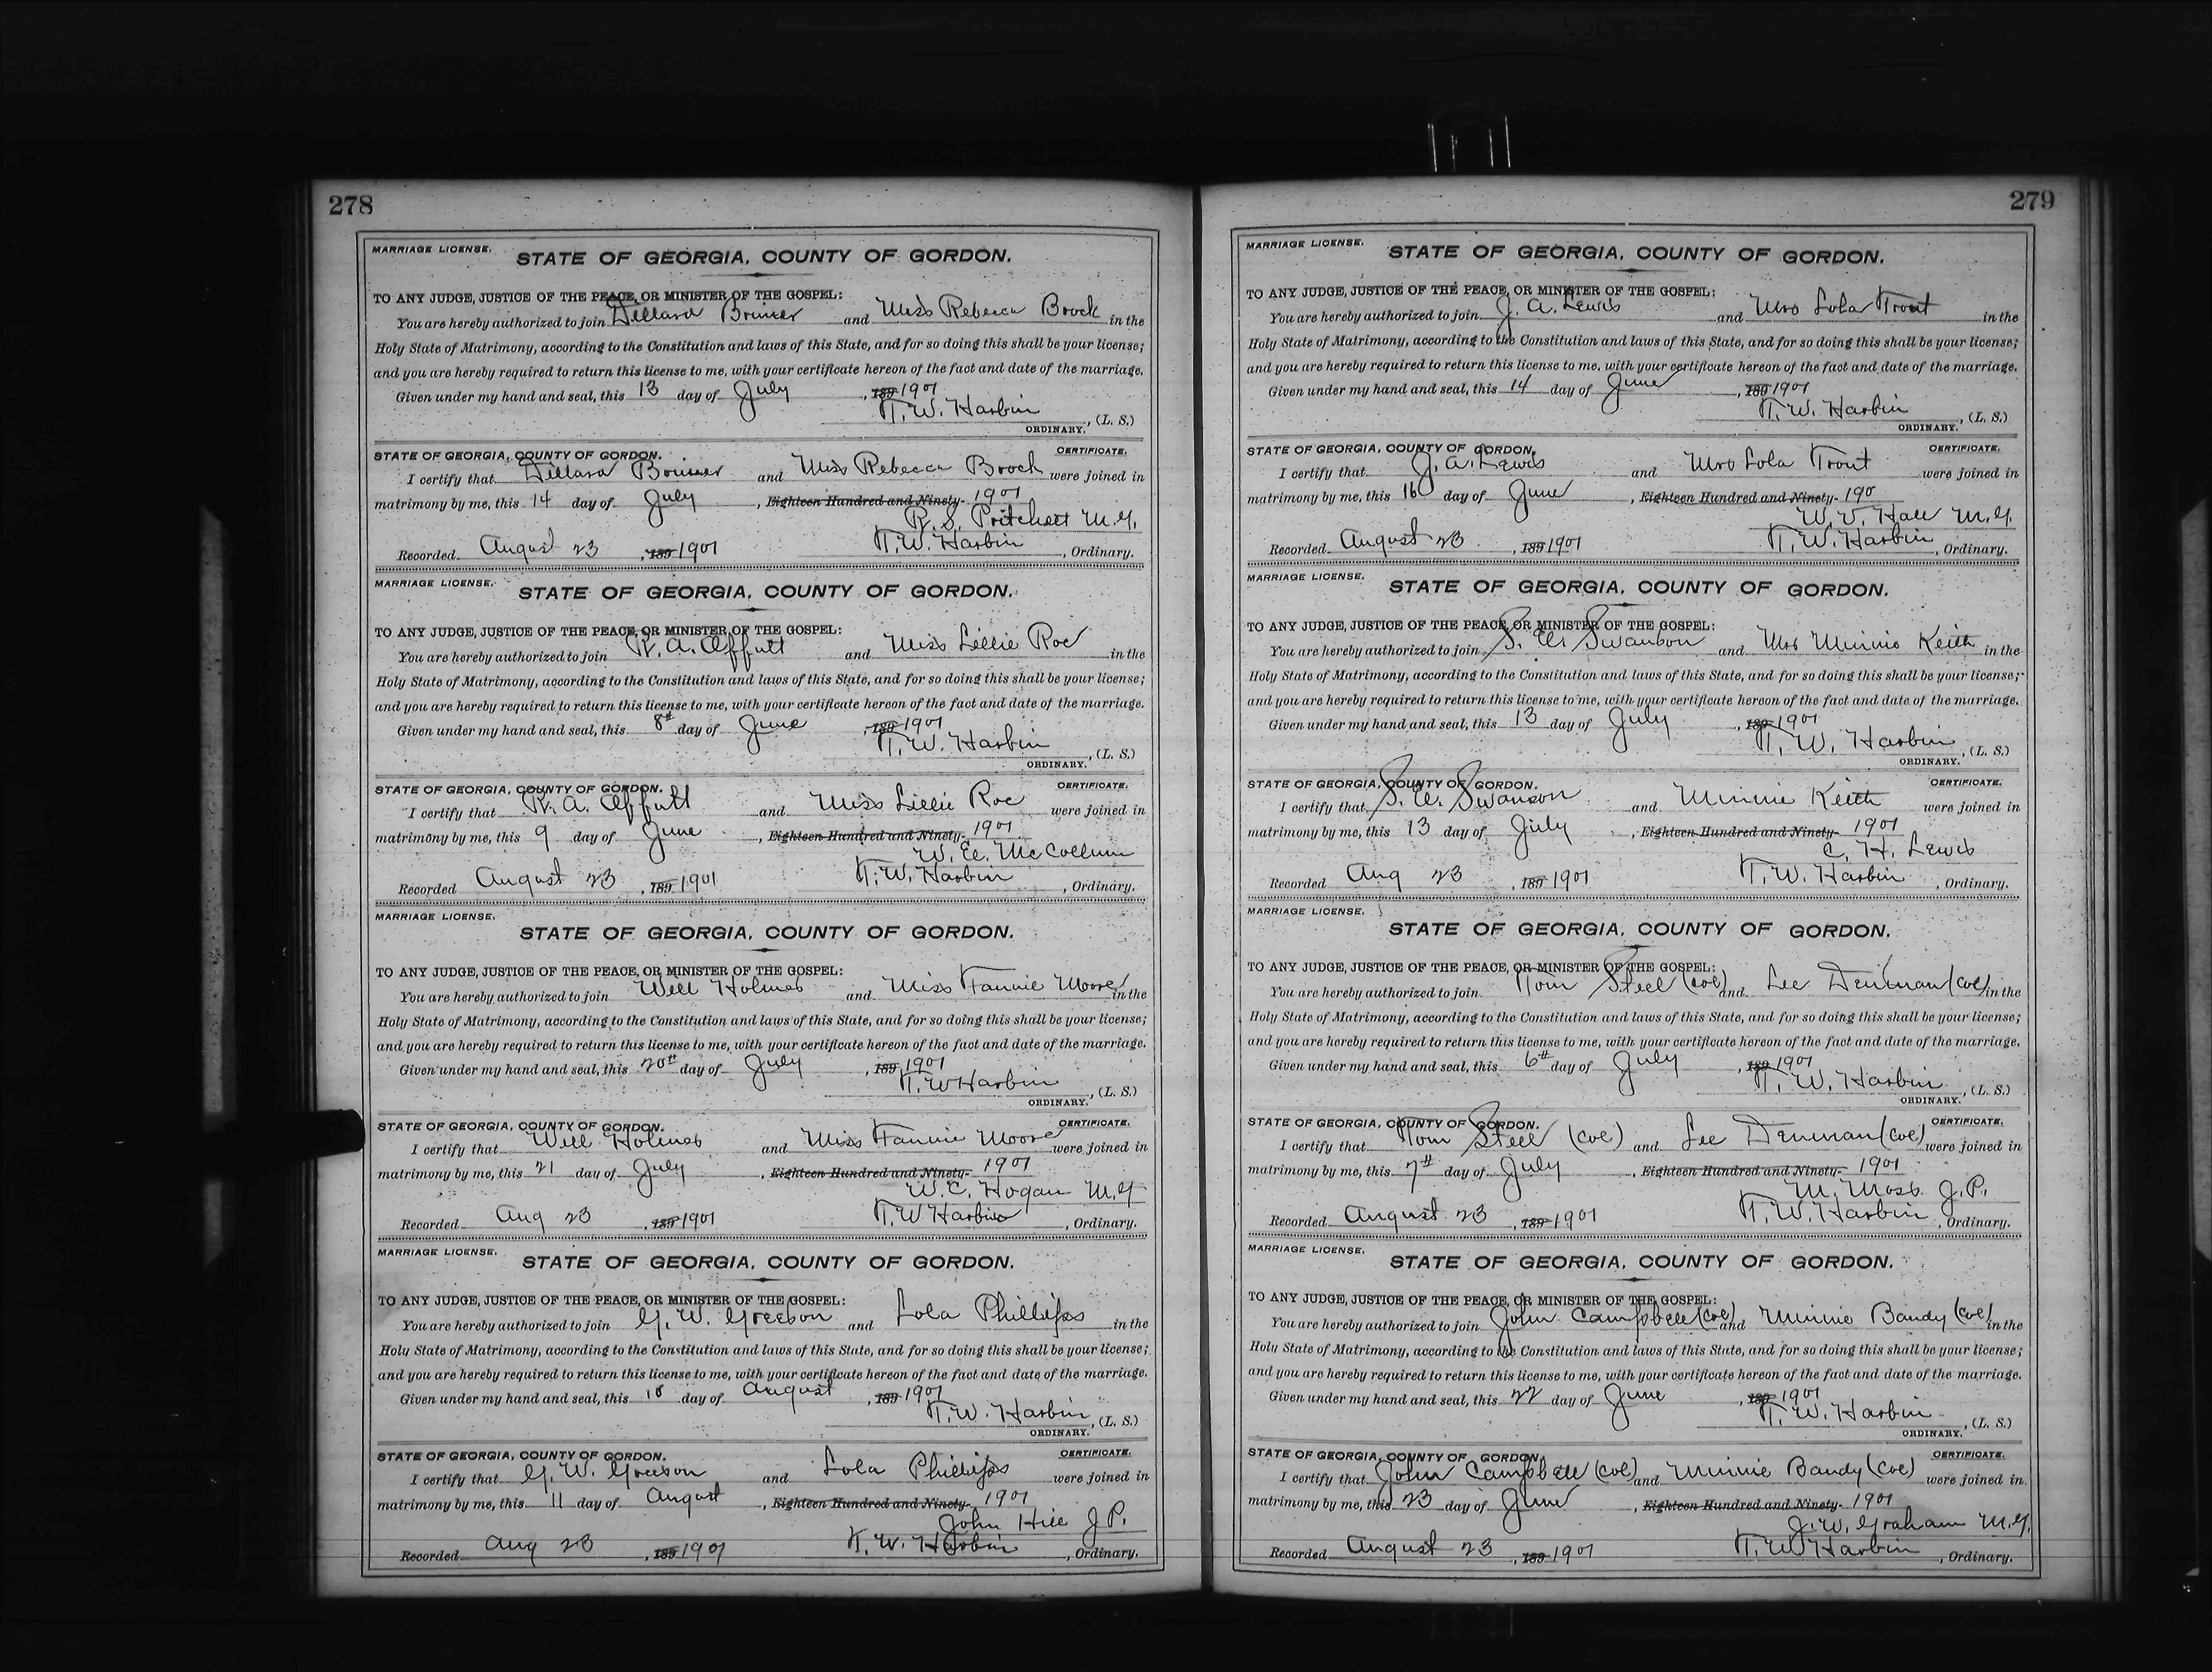 278
MARRIAGE LICENSE.
STATE OF GEORGIA, COUNTY OF GORDON.
TO ANY JUDGE, JUSTICE OF THE PEACE, OR MINISTER OF THE GOSPEL:
You are hereby authorized to join Dillard and Miss Rebecca Brock in the
Holy State of Matrimony, according to the Constitution and laws of this State, and for so doing this shall be your license;
and you are hereby required to return this license to me, with your certificate hereon of the fact and date of the marriage.
Given under my hand and seal, this 13 day of July, 189 1901
T. W. Harbin, (L. S.)
ORDINARY.
STATE OF GEORGIA, COUNTY OF GORDON. CERTIFICATE.
I certify that Dillard and Miss Rebecca Brock were joined in
matrimony by me, this 14 day of July, Eighteen Hundred and Ninety- 1901
R. S. Pritchett M.G.
Recorded August 23, 189 1901 T. W. Harbin, Ordinary.
MARRIAGE LICENSE.
STATE OF GEORGIA, COUNTY OF GORDON.
TO ANY JUDGE, JUSTICE OF THE PEACE, OR MINISTER OF THE GOSPEL:
You are hereby authorized to join R. A. Offutt and Miss Lillie Roe in the
Holy State of Matrimony, according to the Constitution and laws of this State, and for so doing this shall be your license;
and you are hereby required to return this license to me, with your certificate hereon of the fact and date of the marriage.
Given under my hand and seal, this 8th day of June, 189 1901
T. W. Harbin, (L. S.)
ORDINARY.
STATE OF GEORGIA, COUNTY OF GORDON. CERTIFICATE.
I certify that R. A. Offutt and Miss Lillie Roe were joined in
matrimony by me, this 9 day of June, Eighteen Hundred and Ninety- 1901
W. E. McCollum
Recorded August 23, 189 1901 T. W. Harbin, Ordinary.
MARRIAGE LICENSE.
STATE OF GEORGIA, COUNTY OF GORDON.
TO ANY JUDGE, JUSTICE OF THE PEACE, OR MINISTER OF THE GOSPEL:
You are hereby authorized to join Will Holmes and Miss Fannie Moore in the
Holy State of Matrimony, according to the Constitution and laws of this State, and for so doing this shall be your license;
and you are hereby required to return this license to me, with your certificate hereon of the fact and date of the marriage.
Given under my hand and seal, this 20th day of July, 189 1901
T. W Harbin, (L. S.)
ORDINARY.
STATE OF GEORGIA, COUNTY OF GORDON. CERTIFICATE.
I certify that Will Holmes and Miss Fannie Moore were joined in
matrimony by me, this 21 day of July, Eighteen Hundred and Ninety- 1901
W. C. Hogan M.G
Recorded Aug 23, 189 1901 T. W Harbin, Ordinary.
MARRIAGE LICENSE.
STATE OF GEORGIA, COUNTY OF GORDON.
TO ANY JUDGE, JUSTICE OF THE PEACE, OR MINISTER OF THE GOSPEL:
You are hereby authorized to join G. W. Greeson and Lola Phillips in the
Holy State of Matrimony, according to the Constitution and laws of this State, and for so doing this shall be your license;
and you are hereby required to return this license to me, with your certificate hereon of the fact and date of the marriage.
Given under my hand and seal, this 10 day of August, 189 1901
T. W. Harbin, (L. S.)
ORDINARY.
STATE OF GEORGIA, COUNTY OF GORDON. CERTIFICATE.
I certify that G. W. Greeson and Lola Phillips were joined in
matrimony by me, this 11 day of August, Eighteen Hundred and Ninety- 1901
John Hill J.P.
Recorded Aug 23, 189 1901 T. W. Harbin, Ordinary.
279
MARRIAGE LICENSE.
STATE OF GEORGIA, COUNTY OF GORDON.
TO ANY JUDGE, JUSTICE OF THE PEACE, OR MINISTER OF THE GOSPEL:
You are hereby authorized to join J. A. Lewis and Mrs Lola Trout in the
Holy State of Matrimony, according to the Constitution and laws of this State, and for so doing this shall be your license;
and you are hereby required to return this license to me, with your certificate hereon of the fact and date of the marriage.
Given under my hand and seal, this 14 day of June, 189 1901
T. W. Harbin, (L. S.)
ORDINARY.
STATE OF GEORGIA, COUNTY OF GORDON. CERTIFICATE.
I certify that J. A. Lewis and Mrs Lola Trout were joined in
matrimony by me, this 16 day of June, Eighteen Hundred and Ninety- 190
W. V. Hall M.G.
Recorded August 23, 189 1901 T. W. Harbin, Ordinary.
MARRIAGE LICENSE.
STATE OF GEORGIA, COUNTY OF GORDON.
TO ANY JUDGE, JUSTICE OF THE PEACE, OR MINISTER OF THE GOSPEL:
You are hereby authorized to join S. E. Swanson and Mrs Minnie Keith in the
Holy State of Matrimony, according to the Constitution and laws of this State, and for so doing this shall be your license;
and you are hereby required to return this license to me, with your certificate hereon of the fact and date of the marriage.
Given under my hand and seal, this 13 day of July, 189 1901
T. W. Harbin, (L. S.)
ORDINARY.
STATE OF GEORGIA, COUNTY OF GORDON. CERTIFICATE.
I certify that S. E. Swanson and Minnie Keith were joined in
matrimony by me, this 13 day of July, Eighteen Hundred and Ninety- 1901
C. H. Lewis
Recorded Aug 23, 189 1901 T. W. Harbin, Ordinary.
MARRIAGE LICENSE.
STATE OF GEORGIA, COUNTY OF GORDON.
TO ANY JUDGE, JUSTICE OF THE PEACE, OR MINISTER OF THE GOSPEL:
You are hereby authorized to join Tom Steel (col) and Lee Denman (col) in the
Holy State of Matrimony, according to the Constitution and laws of this State, and for so doing this shall be your license;
and you are hereby required to return this license to me, with your certificate hereon of the fact and date of the marriage.
Given under my hand and seal, this 6th day of July, 189 1901
T. W. Harbin, (L. S.)
ORDINARY.
STATE OF GEORGIA, COUNTY OF GORDON. CERTIFICATE.
I certify that Tom Steel (col) and Lee Denman (col) were joined in
matrimony by me, this 7th day of July, Eighteen Hundred and Ninety- 1901
M. Moss. J.P.
Recorded August 23, 189 1901 T. W. Harbin, Ordinary.
MARRIAGE LICENSE.
STATE OF GEORGIA, COUNTY OF GORDON.
TO ANY JUDGE, JUSTICE OF THE PEACE, OR MINISTER OF THE GOSPEL:
You are hereby authorized to join John Campbell (col) and Minnie Bandy (col) in the
Holy State of Matrimony, according to the Constitution and laws of this State, and for so doing this shall be your license;
and you are hereby required to return this license to me, with your certificate hereon of the fact and date of the marriage.
Given under my hand and seal, this 22 day of June, 189 1901
T. W. Harbin, (L. S.)
ORDINARY.
STATE OF GEORGIA, COUNTY OF GORDON. CERTIFICATE.
I certify that John Campbell (col) and Minnie Bandy (col) were joined in
matrimony by me, this 23 day of June, Eighteen Hundred and Ninety- 1901
J. W. Graham M.G.
Recorded August 23, 189 1901 T. W Harbin, Ordinary.